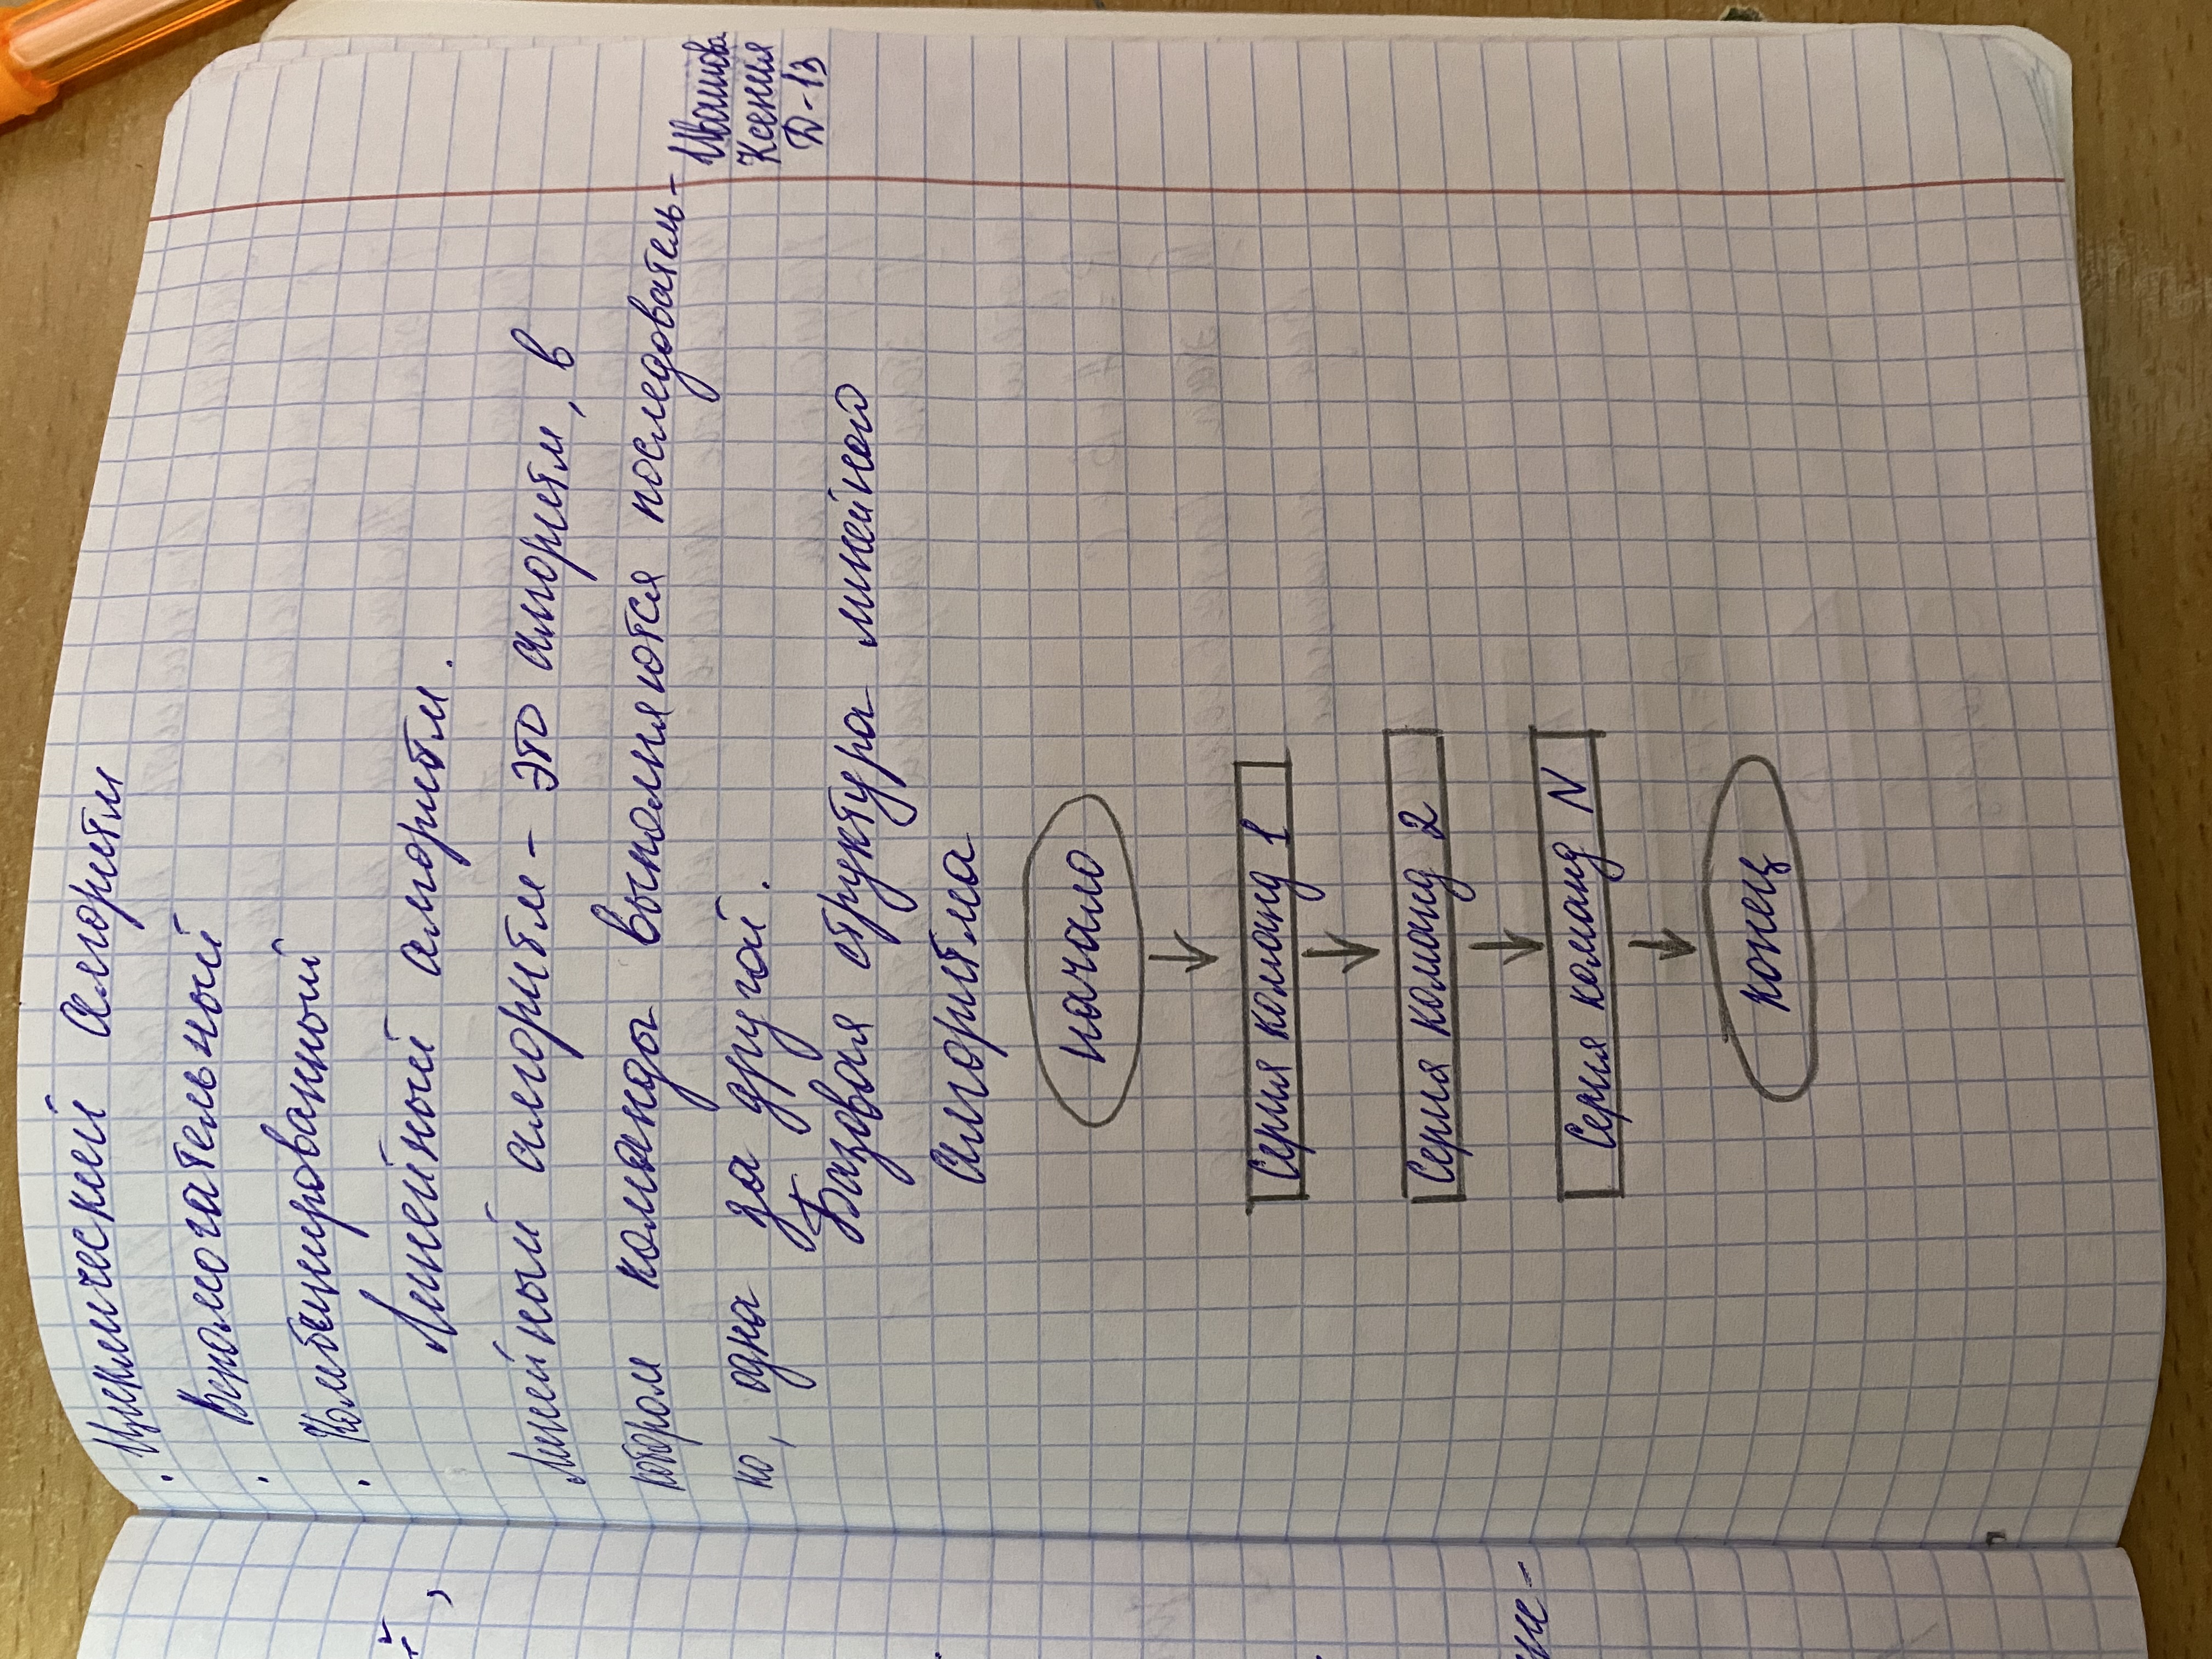 · Циклический алгоритм
· Вспомогательный
· Комбинированный
Линейный алгоритм.
Линейный алгоритм - это алгоритм, в
котором команды выполняются последователь-
но, одна за другой.
Базовая структура линейного
алгоритма
начало
Серия команд 1
Серия команд 2
Серия команд N
конец
Ксения
D-13